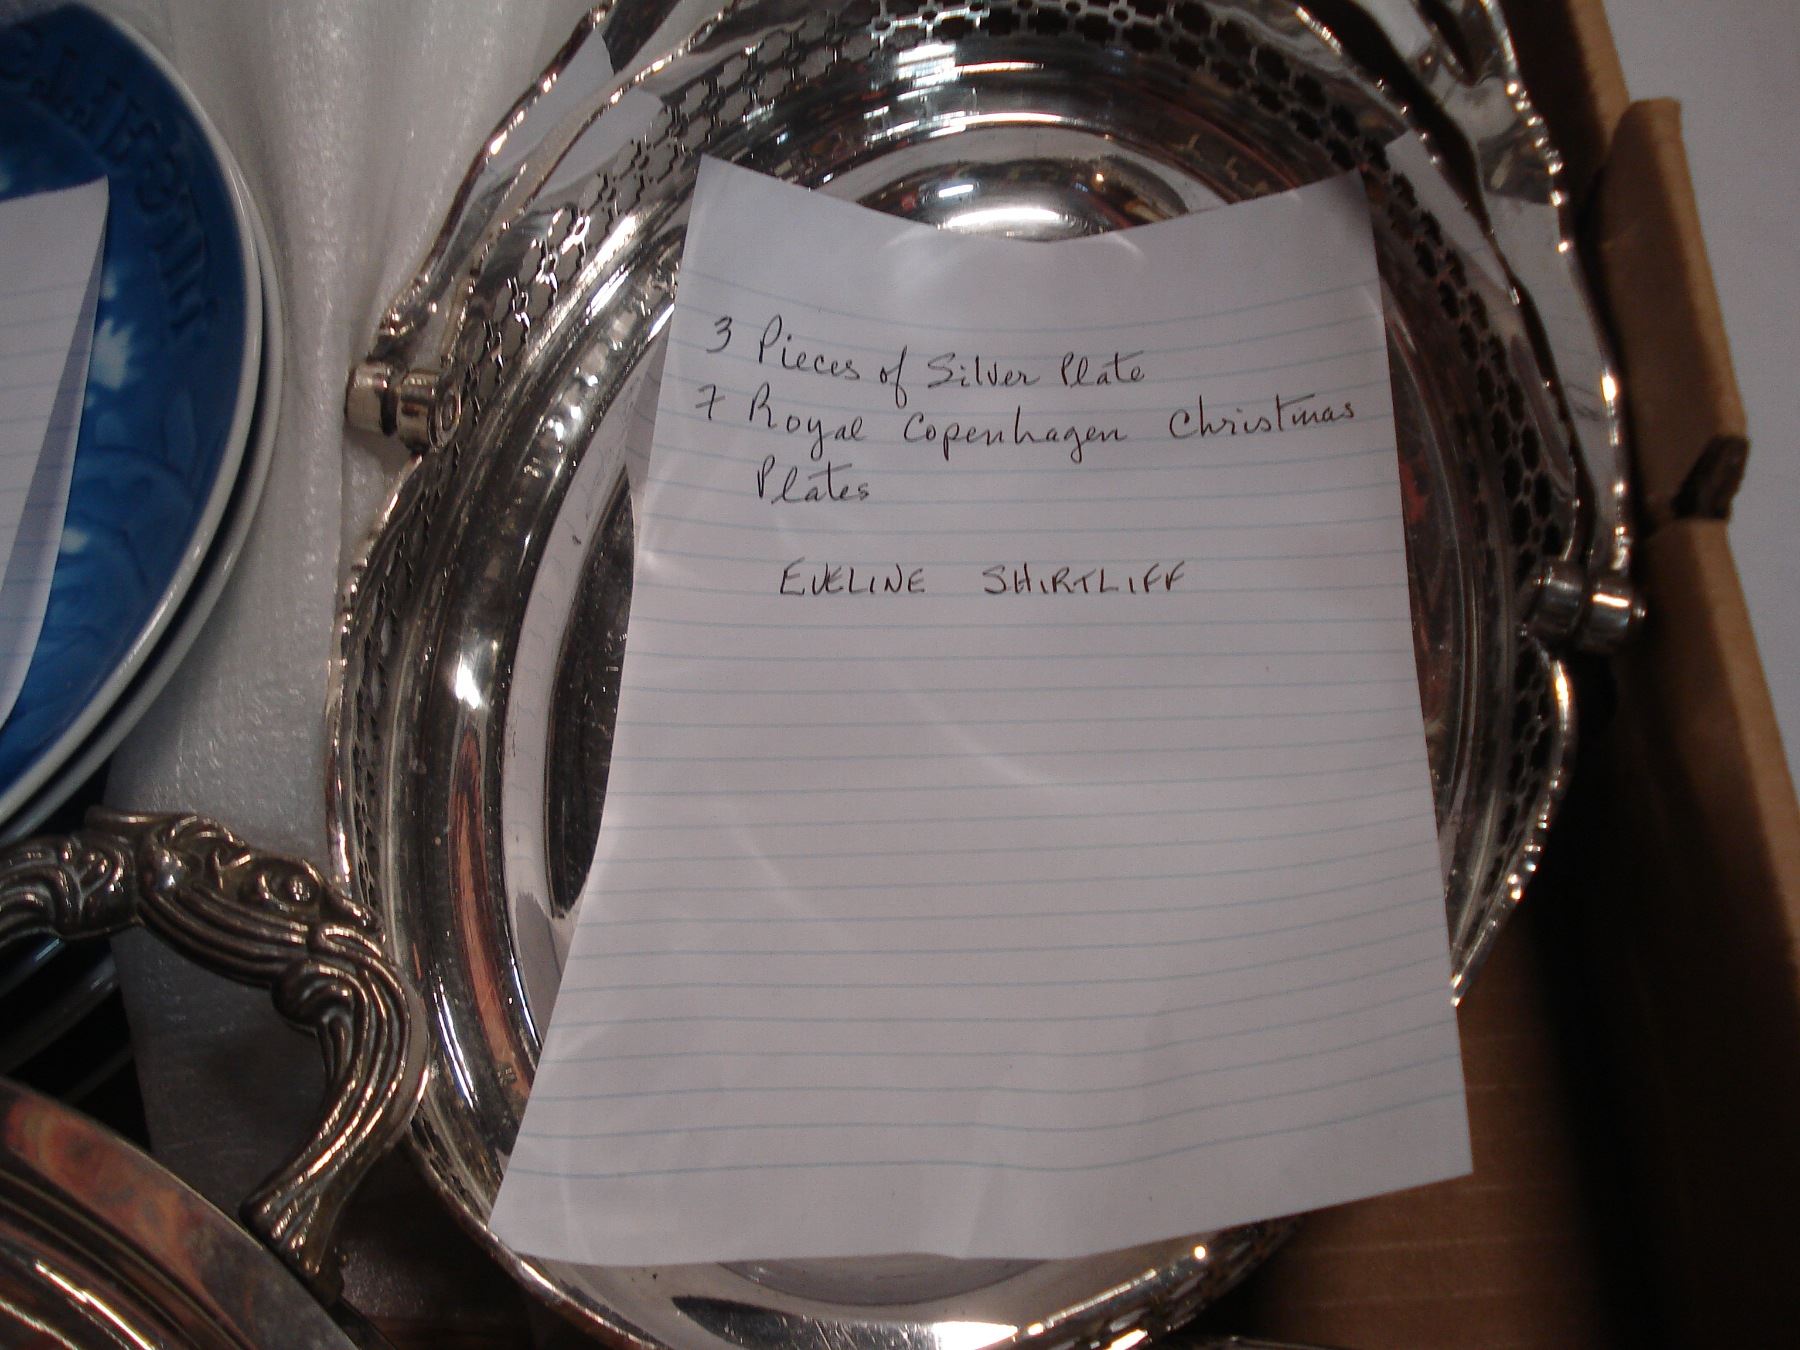 3 Pieces of Silver Plate
7 Royal Copenhagen Christmas
Plates
EVELINE SHIRTLIFF